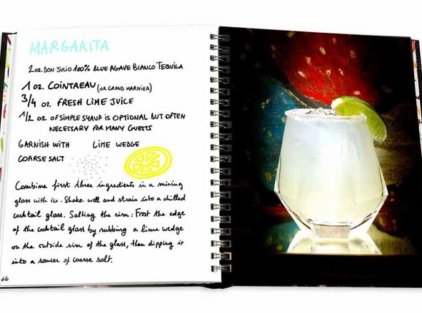 MARGARITA
2 oz. DON JULIO 100% BLUE AGAVE BLANCO TEQUILA
1 OZ. COINTREAU (OR GRAND MARNIER)
3/4 OZ. FRESH LIME JUICE
1/2 OZ OF SIMPLE SYRUP IS OPTIONAL BUT OFTEN
NECESSARY FOR MANY GUESTS
GARNISH WITH LIME WEDGE
COARSE SALT
Combine first three ingredients in a mixing
glass with ice. Shake well and strain into a chilled
cocktail glass. Salting the rim: Frost the edge
of the cocktail glass by rubbing a lime wedge
on the outside rim of the glass, then dipping it
into a saucer of coarse salt.
66